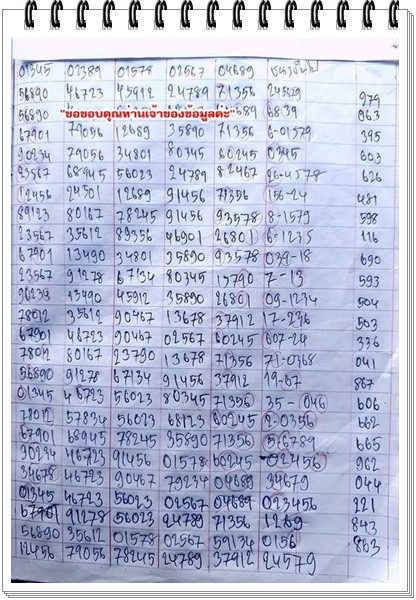 01345 02389 01578 02567 04689
56890 46723 45912 24789 71356 24589 979
56890 6839 063
"ขอขอบคุณท่านเจ้าของข้อมูลค่ะ"
67901 79056 12689 35890 71356 6-01579 395
90234 79056 34801 80345 60245 0345 603
23567 68945 56023 24789 82467 26-4578 626
12456 24501 12689 91456 71356 156-24 481
89123 80167 78245 91456 93578 8-1579 598
23567 35612 89356 46901 26801 6-1235 116
67901 13490 34801 35890 93578 039-18 690
23567 91278 67134 80345 15790 7-13 593
90234 13490 45912 35890 26801 09-1234 504
78012 35612 90467 13678 37912 17-236 503
67901 46723 90467 02567 60245 607-24 336
78012 80167 23790 13678 71356 71-0368 041
56890 91278 67134 91456 37912 19-07 867
01345 46723 56023 80345 71356 35-046 606
78012 57834 56023 68123 60245 2-0356 662
67901 68945 78245 35890 71356 56789 665
90234 46723 91456 01578 60245 02456 962
34678 46723 90467 79234 04689 34679 044
01345 46723 56023 02567 04689 023456 221
67901 91278 56023 24789 71356 1269 843
56890 35612 01578 02567 59134 0156 863
12456 79056 78245 24789 37912 24579